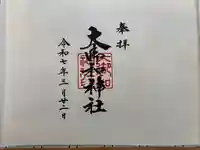 奉拝
大神社
令和七年三月廿二日